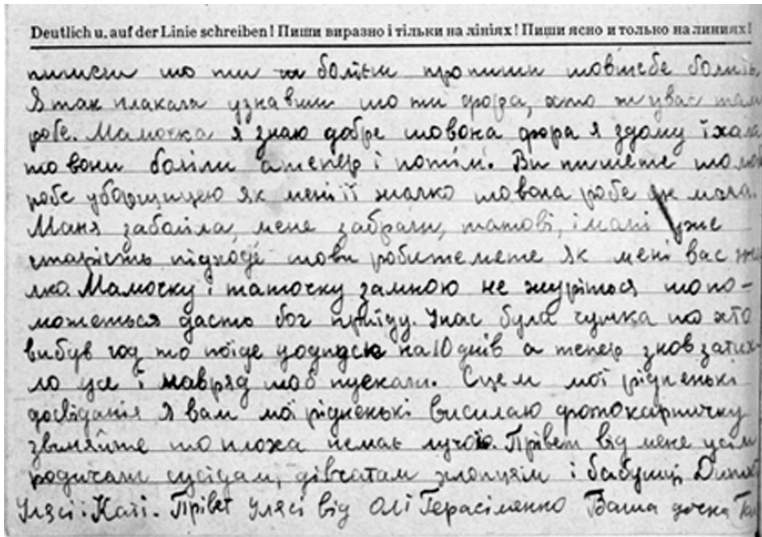 Deutlich u. auf der Linie schreiben! Пиши виразно і тільки на лініях! Пиши ясно и только на линиях!
пишеш шо ти болієш пропиши шовтебе болить
Я так плакала узнавши шо ти фора, хто ж увас там
робе. Мамочка я знаю добре шовона фора я здому їхала
то вони боліли атепер і потім. Ви пишете шо
робе уборщицею як мені її жалко шовона робе як мала.
Маня заболіла, мене забрали, татові, і мамі уже
старість підходе шови робитемете як мені вас жа
лко Мамочку і таточку замною не журіться шопо-
можеться дасть бог приїду. Унас була чутка шо хто
вибув год то поїде уодпуск на 10 днів а тепер знов затих-
ло усе і навряд шоб пускали. Сцем мої рідненькі
досвідания я вам мої рідненькі висилаю фотокарточку
звиняйте шо плоха немає лучої. Прівет від мене усім
родичам сусідам, дівчатам хлопцям і бабушці
Улясі і Каті. Прівет Улясі від Олі Герасіменко Ваша дочка